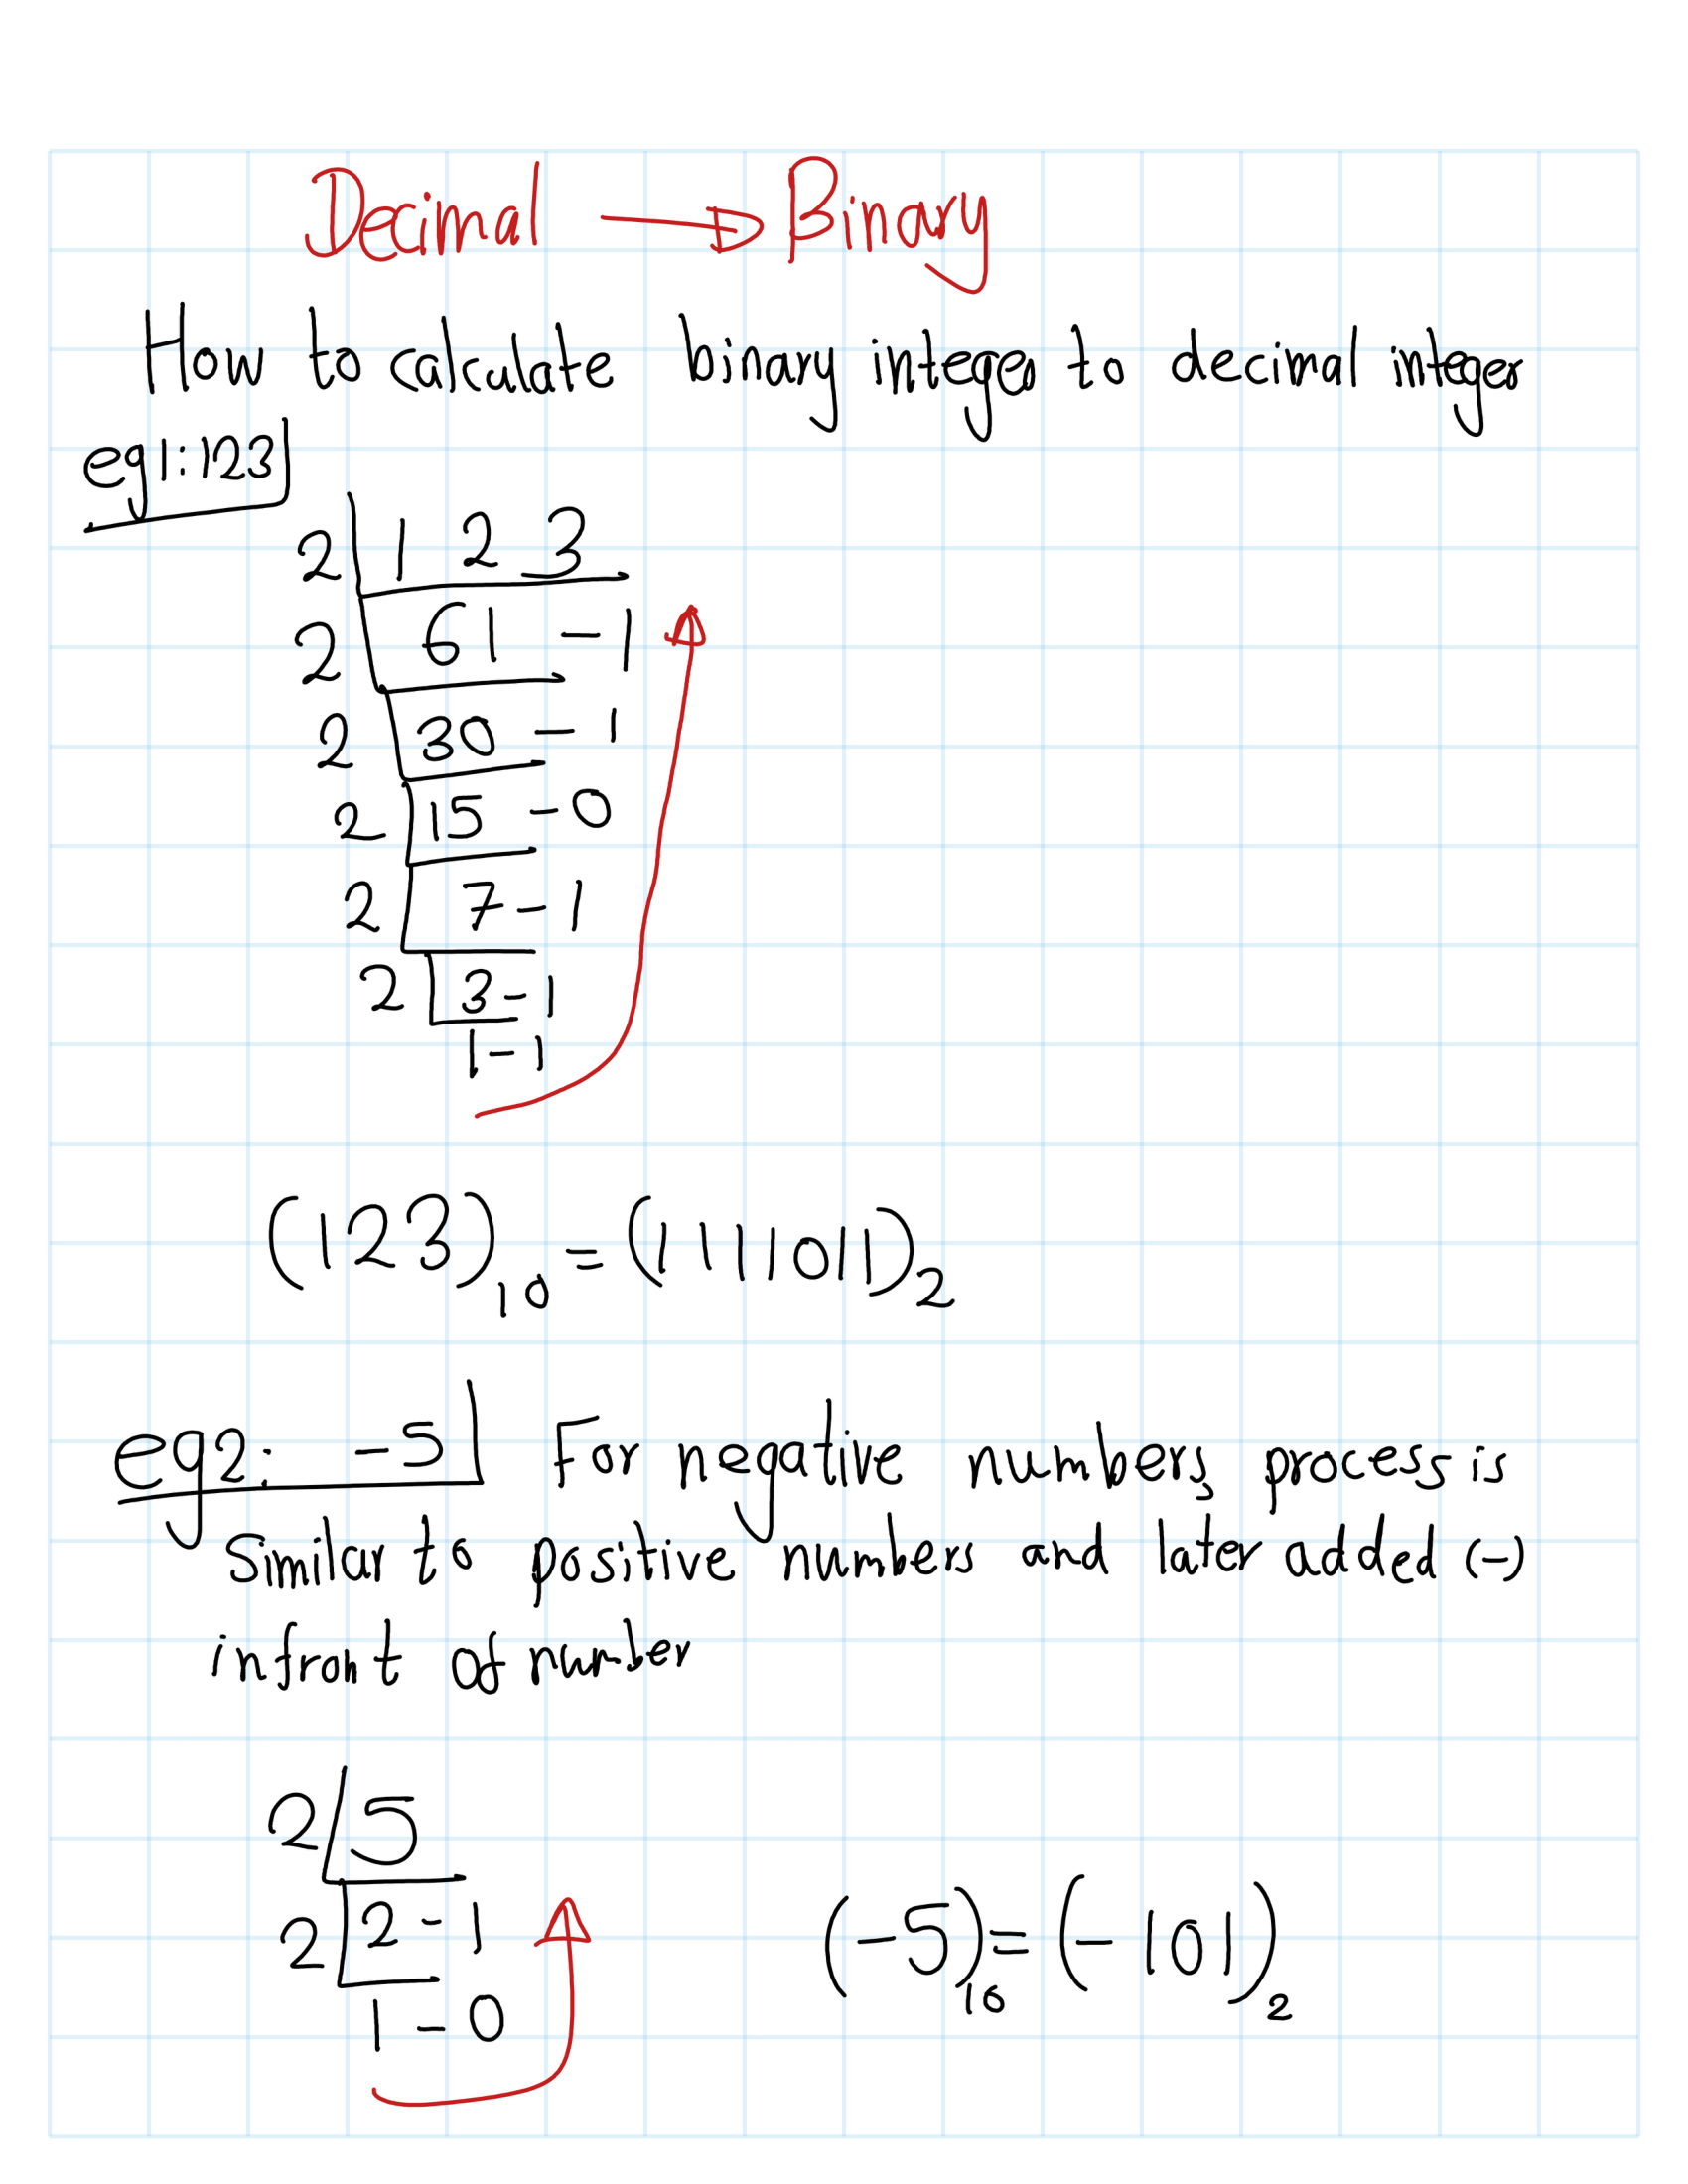 Decimal → Binary
How to calculate binary integer to decimal integer
eg1: 123
2 | 1 2 3
2 | 61 - 1
2 | 30 - 1
2 | 15 - 0
2 | 7 - 1
2 | 3 - 1
1 - 1
(123)₁₀ = (1111011)₂
eg2: -5 For negative numbers, process is
similar to positive numbers and later added (-)
infront of number
2 | 5
2 | 2 - 1
1 - 0
(-5)₁₀ = (-101)₂